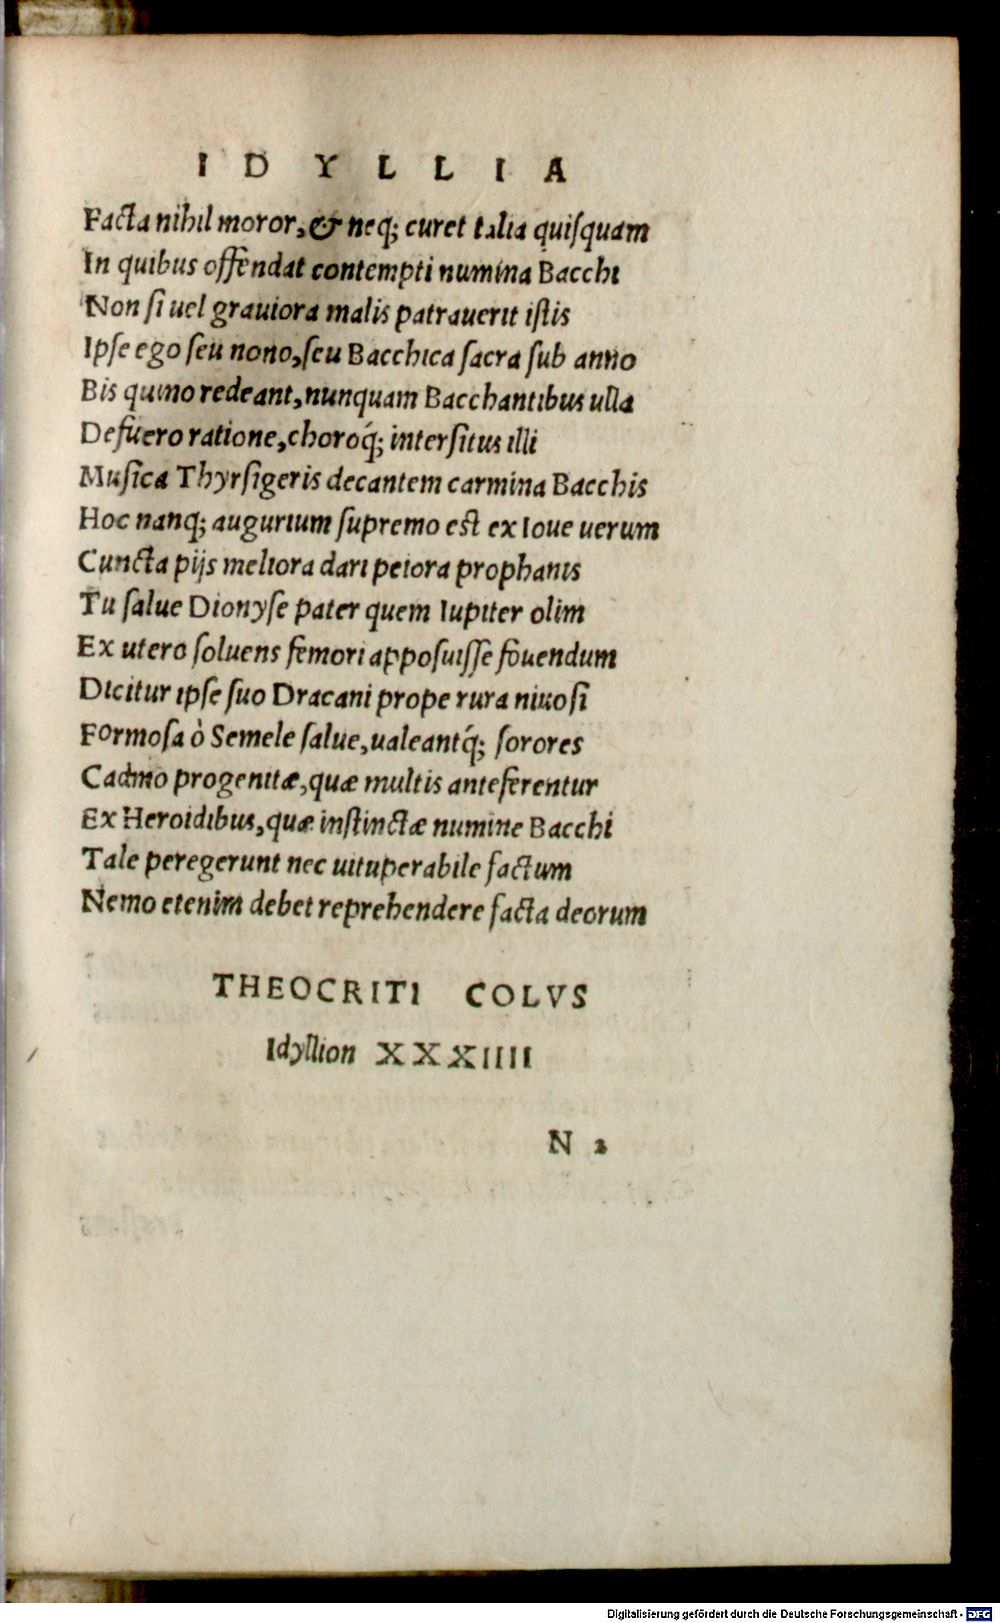 IDYLLIA
Facta nihil moror, & neq; curet talia quiſquam
In quibus offendat contempti numina Bacchi
Non ſi uel grauiora malis patrauerit iſtis
Ipſe ego ſeu nono, ſeu Bacchica ſacra ſub anno
Bis quino redeant, nunquam Bacchantibus ulla
Defuero ratione, choroq́; interſitus illi
Muſica Thyrſigeris decantem carmina Bacchis
Hoc nanq; augurium ſupremo eſt ex Ioue uerum
Cuncta pijs meliora dari peiora prophanis
Tu ſalue Dionyſe pater quem Iupiter olim
Ex utero ſoluens femori appoſuiſſe fouendum
Dicitur ipſe ſuo Dracani prope rura niuoſi
Formoſa ò Semele ſalue, ualeantq́; ſorores
Cadmo progenitæ, quæ multis anteferentur
Ex Heroidibus, quæ inſtinctæ numine Bacchi
Tale peregerunt nec uituperabile factum
Nemo etenim debet reprehendere facta deorum
THEOCRITI COLVS
Idyllion XXXIIII
N 2
Digitalisierung gefördert durch die Deutsche Forschungsgemeinschaft - DFG